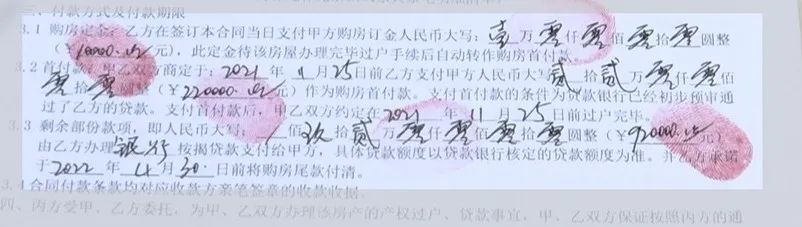 三、付款方式及付款期限
3.1 购房定金：乙方在签订本合同当日支付甲方购房订金人民币大写：壹万零仟零佰零拾零圆整
（￥10000.00元），此定金待该房屋办理完毕过户手续后自动转作购房首付款。
3.2首付款：甲乙双方商定于：2021年11月25日前乙方支付甲方人民币大写贰拾贰万零仟零佰
零拾零圆整（￥220000.00元）作为购房首付款。支付首付款的条件为贷款银行已经初步预审通
过了乙方的贷款。支付首付款后，甲乙双方约定在2021年11月25日前过户完毕。
3.3 剩余部份款项，即人民币大写：佰玖拾贰万零仟零佰零拾零圆整（￥920000.00元）
由乙方办理银行按揭贷款支付给甲方，具体贷款额度以贷款银行核定的贷款额度为准。并乙方承诺
于2022年4月30日前将购房尾款付清。
3.4合同付款条款均对应收款方亲笔签章的收款收据。
四、丙方受甲、乙方委托，为甲、乙双方办理该房产的产权过户、贷款事宜，甲、乙双方保证按照丙方的通